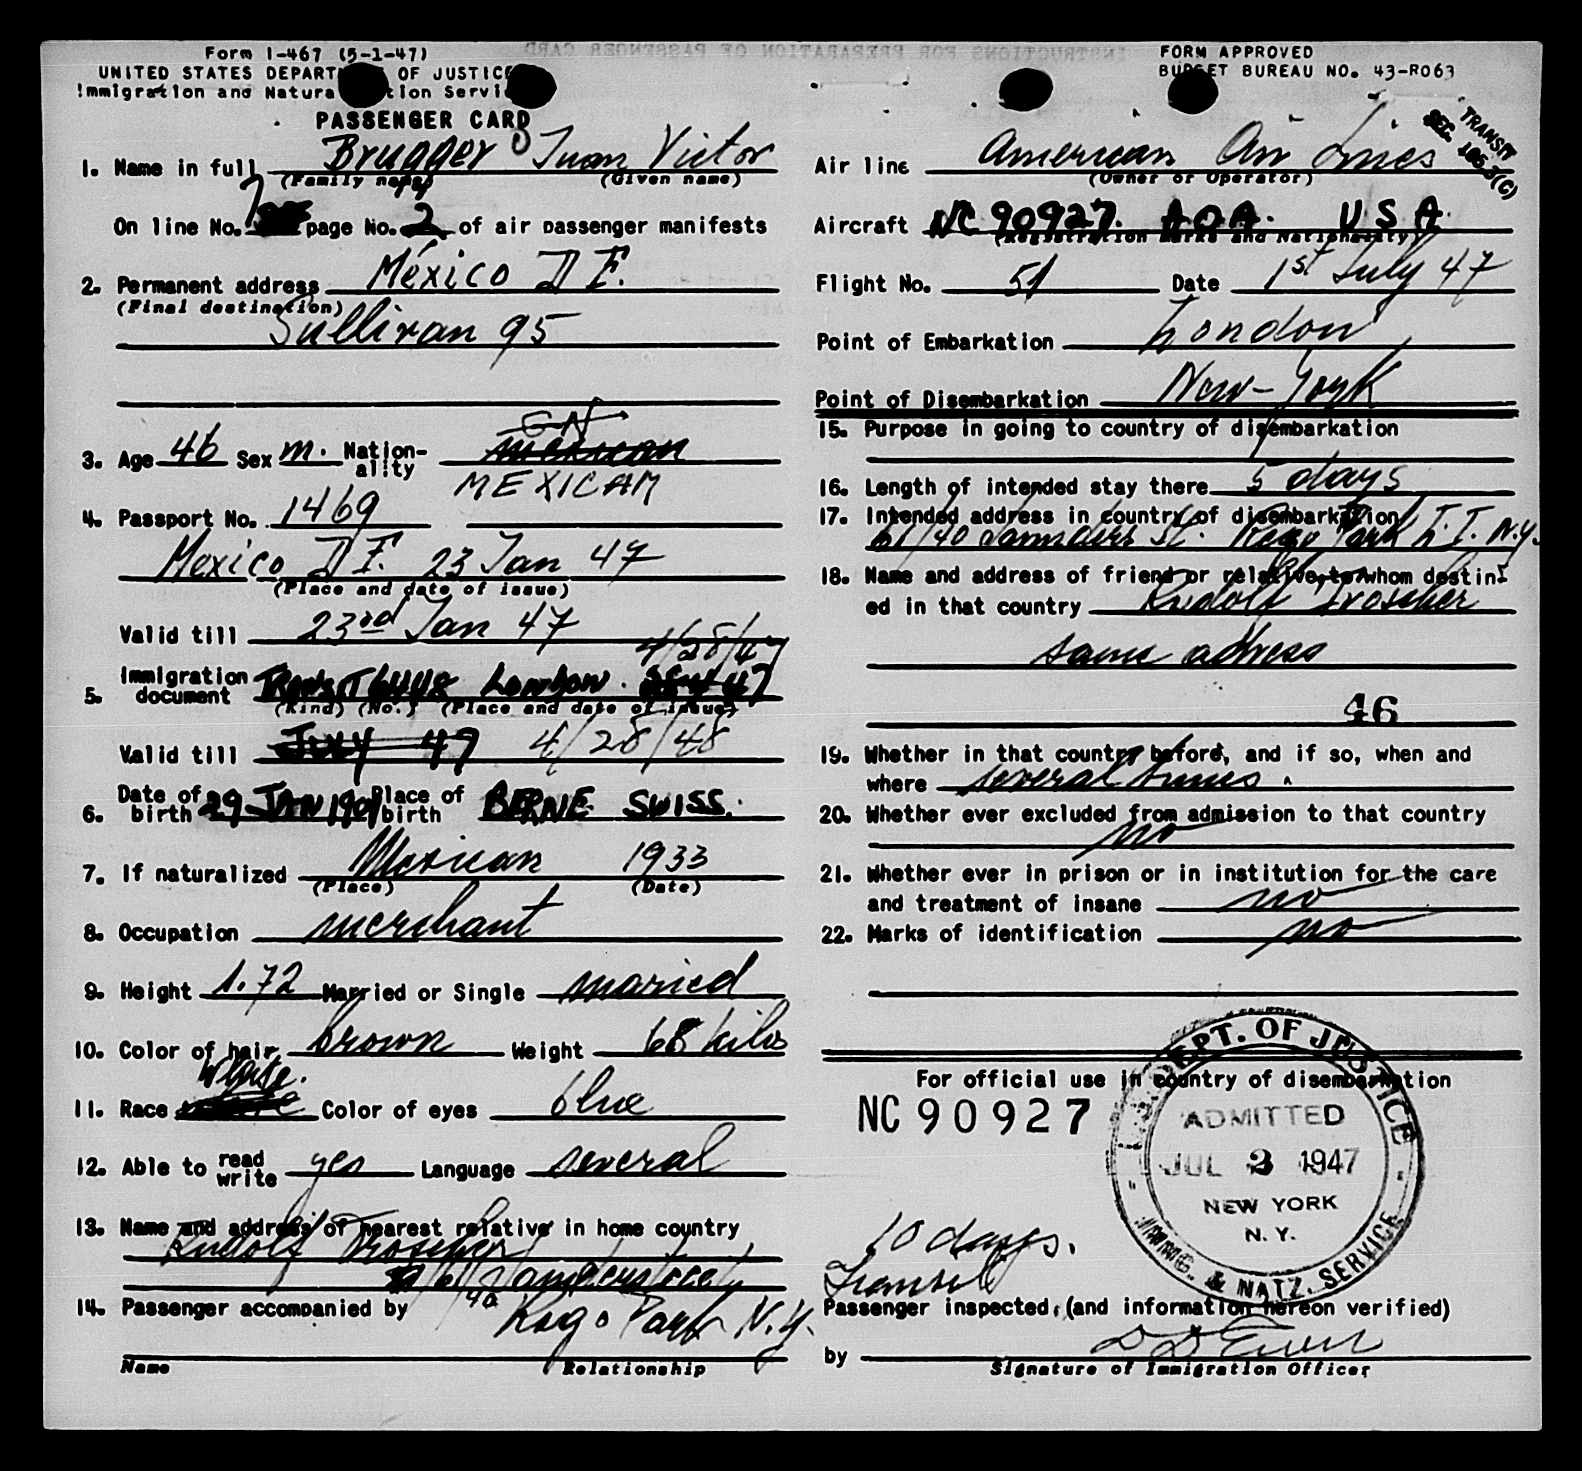 Form I-467 (5-1-47)
UNITED STATES DEPART OF JUSTICE
Immigration and Natura tion Servi
PASSENGER CARD
FORM APPROVED
BUDGET BUREAU NO. 43-R063
TRANSIT
SEC. 165.3(C)
1. Name in full Brugger Juan Victor
(Family name) (Given name)
On line No. 7 page No. 2 of air passenger manifests
2. Permanent address México D F.
(Final destination)
Sullivan 95
3. Age 46 Sex m. Nation-ality mexican
MEXICAN
4. Passport No. 1469
Mexico D F. 23 Jan 47
(Place and date of issue)
Valid till 23rd Jan 47
4/28/47
5. Immigration document TRANSIT 6448 LONDON. 47
(Kind) (No.) (Place and date of issue)
Valid till JULY 47 4/28/48
6. Date of birth 29 JAN 1901 Place of birth BERNE SWISS.
7. If naturalized Mexican 1933
(Place) (Date)
8. Occupation merchant
9. Height 1.72 Married or Single maried
10. Color of hair brown Weight 68 kilos
White.
11. Race Color of eyes blue
12. Able to read write yes Language several
13. Name and address of nearest relative in home country
Rudolf Troscher
14. Passenger accompanied by
Rego Park N.Y.
Name Relationship
Air line American Air Lines
(Owner or Operator)
Aircraft NC 90927. AOA. USA.
(Registration Marks and Nationality)
Flight No. 51 Date 1st July 47
Point of Embarkation London
Point of Disembarkation New-York
15. Purpose in going to country of disembarkation
16. Length of intended stay there 5 days
17. Intended address in country of disembarkation
61/40 Saunders St. Rego Park L.I. N.Y.
18. Name and address of friend or relative to whom destin-
ed in that country Rudolf Troscher
same adress
46
19. Whether in that country before, and if so, when and
where several times.
20. Whether ever excluded from admission to that country
no
21. Whether ever in prison or in institution for the care
and treatment of insane no
22. Marks of identification no
For official use in country of disembarkation
NC 90927
U.S. DEPT. OF JUSTICE
ADMITTED
JUL 2 1947
NEW YORK
N. Y.
IMMIG. & NATZ. SERVICE
10 days.
Transit
Passenger inspected, (and information hereon verified)
by
Signature of Immigration Officer